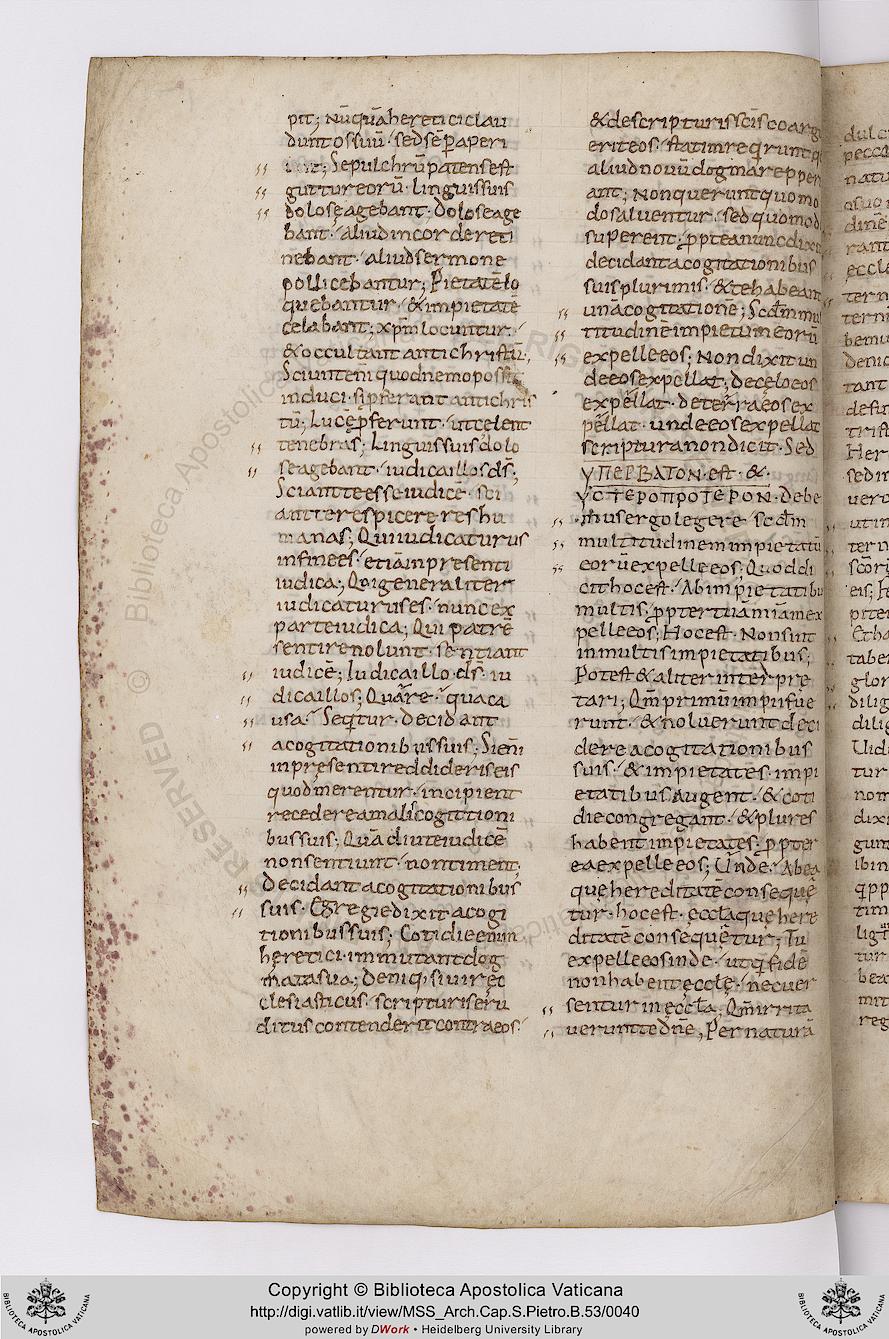 pit; Nūquā heretici clau
dunt os suū · sed sēp aperi
unt; Sepulchrū patens est
guttur eorū · linguis suis
dolose agebant · Dolose age
bant · aliud in corde reti
nebant · aliud sermone
pollicebantur; Pietatē lo
quebantur · & impietatē
celabant; xp̄m locuntur ·
& occultant antichristū;
Sciunt enī quod nemo possit
induci · si pferant antichris
tū; Lucē pferunt · ut celent
tenebras; Linguis suis dolo
se agebant · iudica illos d̄s;
Sciant te esse iudicē · sci
ant te respicere res hu
manas; Qui iudicaturus
in fine es · etiā in presenti
iudica; Qui generaliter
iudicaturus es · nunc ex
parte iudica; Qui patrē
sentire nolunt · sentiant
iudicē; Iudica illo · d̄s · iu
dica illos; Quare · qua ca
usa · Seq̄tur · decidant
a cogitationibus suis; Si eni
in presenti reddideris eis
quod merentur · incipient
recedere a malis cogitationi
bus suis; Quādiu te iudicē
non sentiunt · non timent ·
Decidant a cogitationibus
suis · Egregie dixit a cogi
tionibus suis; Cotidie enim
heretici · immutant dog
mata sua; Deniq; si uir ec
clesiasticus · scripturis eru
ditus contenderit contra eos ·
& de scripturis sc̄is coarg
erit eos · statim reqrunt q
aliud nouū dogma repper
ant; Non querunt quomo
do saluentur · sed quomod
superent · ppterea nunc dixit
decidant a cogitationibus
suis plurimis · & te habeant
unā cogitationē; Scdm mul
titudinē impietatum eorū
expelle eos; Non dixit un
de eos expellat; De celo eos
expellat · de terra eos ex
pellat · unde eos expellat
scriptura non dicit · Sed
ΥΠΕΡΒΑΤΟΝ · est · &
ΥСΤΕΡΟΠΡΟΤΕΡΟΝ · Debe
mus ergo legere · scdm
multitudinem impietatū
eorū expelle eos; Quod di
cit hoc est · Ab impietatibus
multis · ppter tuā mīam ex
pelle eos; Hoc est · Non sint
in multis impietatibus;
Potest & aliter interpre
tari; Qm̄ primum impii fue
runt · & noluerunt deci
dere a cogitationibus
suis · & impietates · impi
etatibus augent · & coti
die congregant · & plures
habent impietates · ppter
ea expelle eos; Unde · Abea
que hereditatē conseque
tur · hoc est · eccl̄a que here
ditatē consequetur; Tu
expelle eos inde · ut q̄ fidē
non habent eccl̄e · nec uer
sentur in eccl̄a, Qm̄ irrita
uerunt te dn̄e, Per naturā
Copyright © Biblioteca Apostolica Vaticana
http://digi.vatlib.it/view/MSS_Arch.Cap.S.Pietro.B.53/0040
powered by DWork • Heidelberg University Library